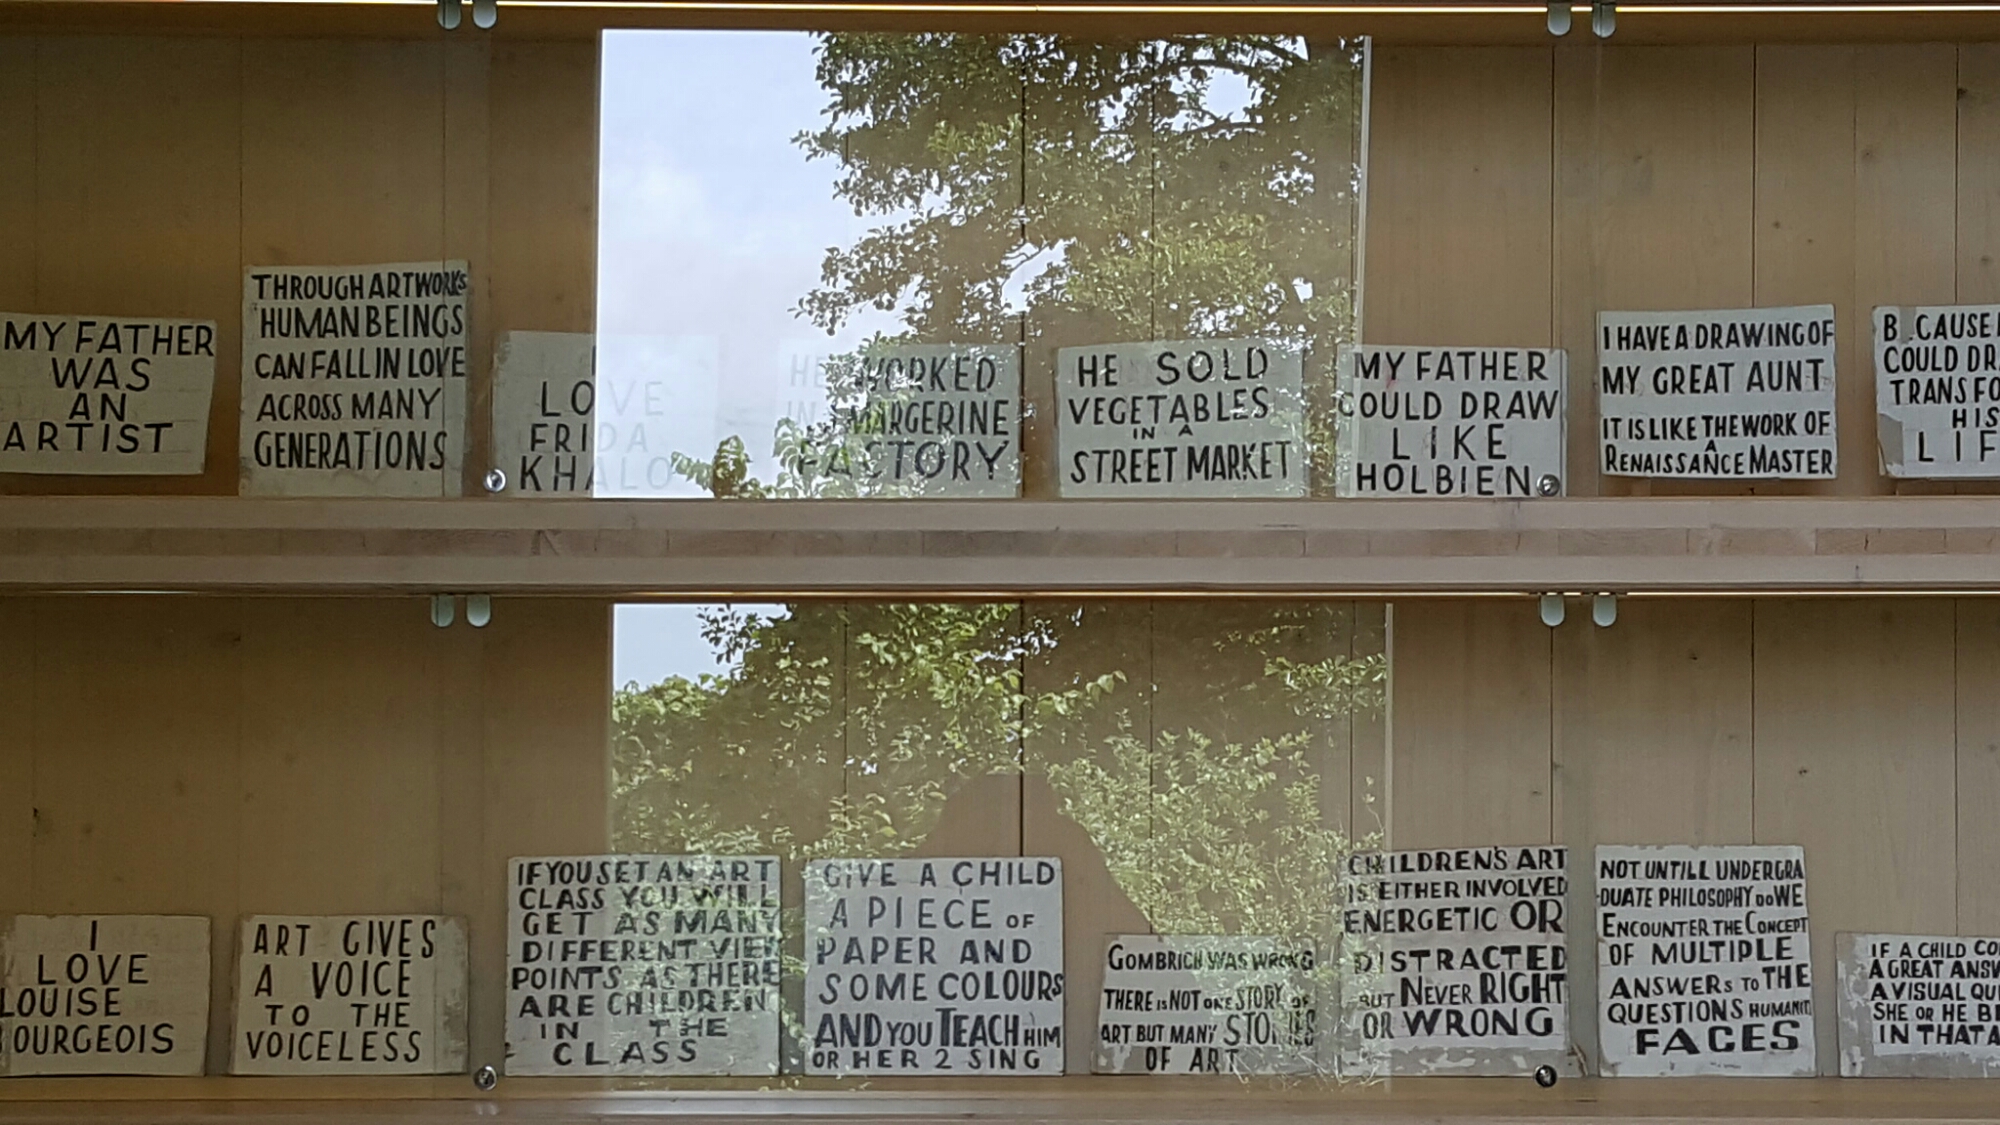 MY FATHER
WAS
AN
ARTIST
THROUGH ARTWORKS
HUMAN BEINGS
CAN FALL IN LOVE
ACROSS MANY
GENERATIONS
I
LOVE
FRIDA
KHALO
HE WORKED
IN A MARGERINE
FACTORY
HE SOLD
VEGETABLES
IN A
STREET MARKET
MY FATHER
COULD DRAW
LIKE
HOLBIEN
I HAVE A DRAWING OF
MY GREAT AUNT
IT IS LIKE THE WORK OF
A
RENAISSANCE MASTER
COULD
HIS
I
LOVE
LOUISE
OURGEOIS
ART GIVES
A VOICE
TO THE
VOICELESS
IF YOU SET AN ART
CLASS YOU WILL
GET AS MANY
DIFFERENT VIEW
POINTS AS THERE
ARE CHILDREN
IN THE
CLASS
GIVE A CHILD
A PIECE OF
PAPER AND
SOME COLOURS
AND YOU TEACH HIM
OR HER 2 SING
GOMBRICH WAS WRONG
THERE IS NOT ONE STORY OF
ART BUT MANY STORIES
OF ART
CHILDREN'S ART
IS EITHER INVOLVED
ENERGETIC OR
DISTRACTED
BUT NEVER RIGHT
OR WRONG
NOT UNTILL UNDERGRA
DUATE PHILOSOPHY DO WE
ENCOUNTER THE CONCEPT
OF MULTIPLE
ANSWERS TO THE
QUESTIONS HUMANITY
FACES
IF A CHILD
A GREAT
A VISUAL
SHE OR HE
IN THAT